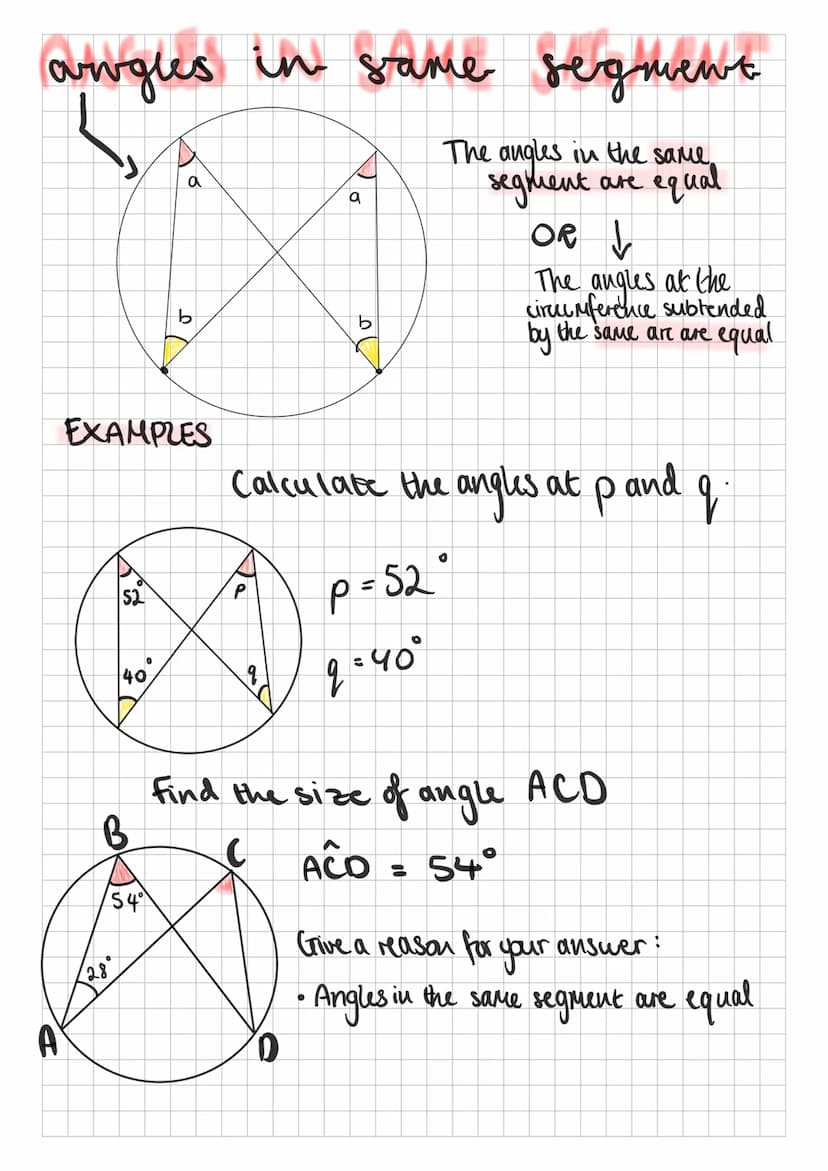 angles in same segment
ANGLES IN SAME SEGMENT
a
a
b
b
The angles in the same
segment are equal
OR
The angles at the
circumference subtended
by the same arc are equal
EXAMPLES
Calculate the angles at p and q.
52°
p
40°
q
p = 52°
q = 40°
Find the size of angle ACD
B
C
54°
28°
A
D
AĈD = 54°
Give a reason for your answer:
• Angles in the same segment are equal